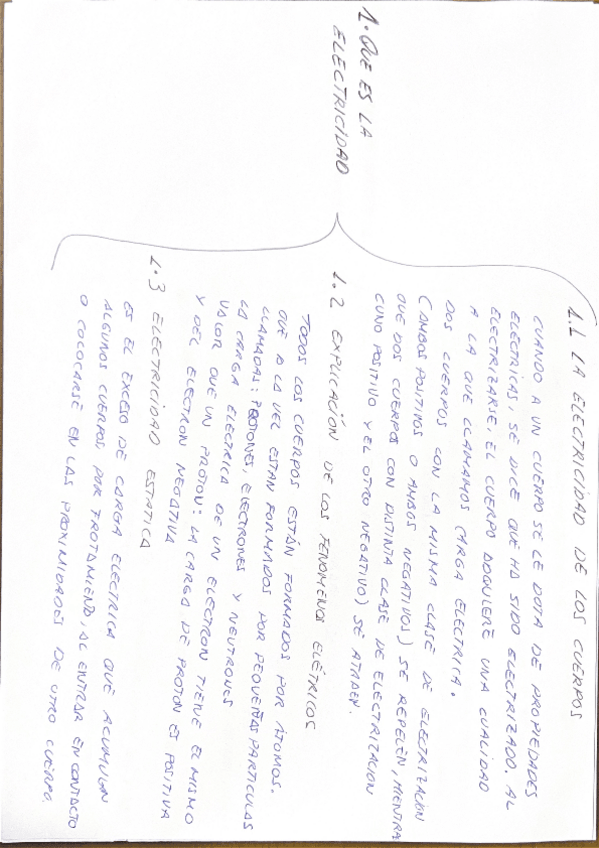 1. QUE ES LA
ELECTRICIDAD
1.1 LA ELECTRICIDAD DE LOS CUERPOS
CUANDO A UN CUERPO SE LE DOTA DE PROPIEDADES
ELECTRICAS, SE DICE QUE HA SIDO ELECTRIZADO. AL
ELECTRIZARSE, EL CUERPO ADQUIERE UNA CUALIDAD
A LA QUE LLAMAMOS CARGA ELECTRICA.
DOS CUERPOS CON LA MISMA CLASE DE ELECTRIZACION
(AMBOS POSITIVOS O AMBOS NEGATIVOS) SE REPELEN, MIENTRA
QUE DOS CUERPOS CON DISTINTA CLASE DE ELECTRIZACION
(UNO POSITIVO Y EL OTRO NEGATIVO) SE ATRAEN.
1.2 EXPLICACIÓN DE LOS FENOMENOS ELÉTRICOS
TODOS LOS CUERPOS ESTÁN FORMADOS POR ÁTOMOS.
QUE A LA VEZ ESTAN FORMADOS POR PEQUEÑAS PARTICULAS
LLAMADAS: PROTONES, ELECTRONES Y NEUTRONES
LA CARGA ELECTRICA DE UN ELECTRON TIENE EL MISMO
VALOR QUE UN PROTON: LA CARGA DE PROTON ES POSITIVA
Y DEL ELECTRON NEGATIVA
1.3 ELECTRICIDAD ESTATICA
ES EL EXCESO DE CARGA ELECTRICA QUE ACUMULAN
ALGUNOS CUERPOS POR FROTAMIENTO, AL ENTRAR EN CONTACTO
O COCOCARSE EN LAS PROXIMIDADES DE OTRO CUERPO.